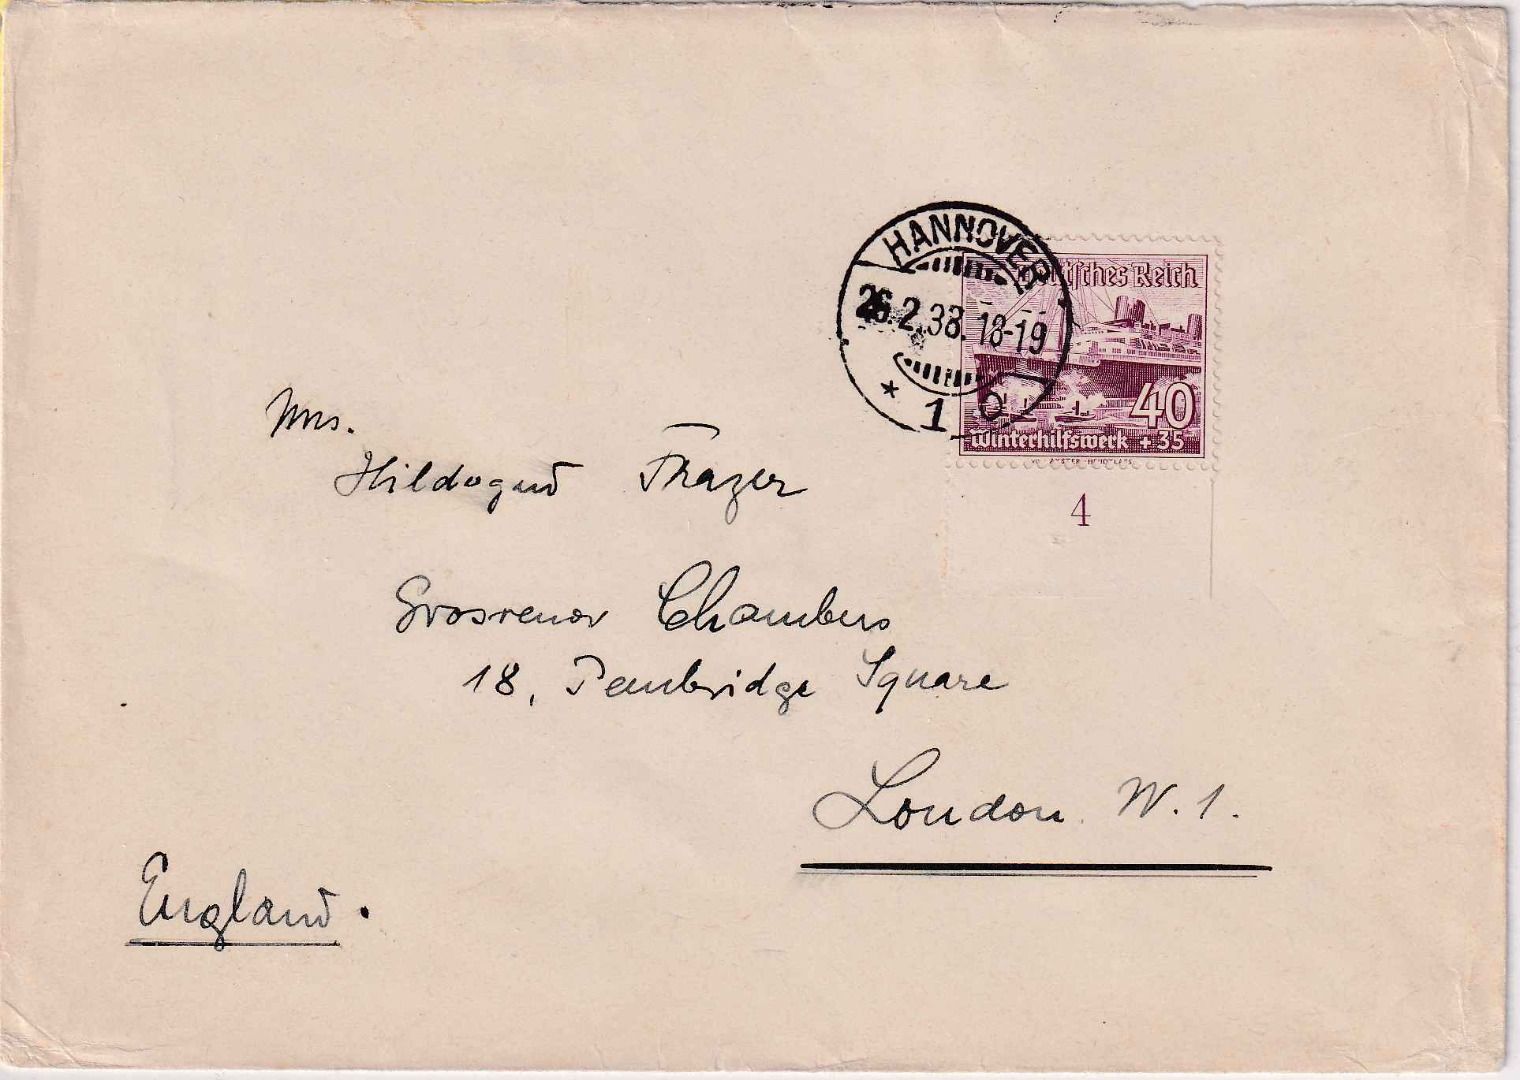 HANNOVER
26.2.38.18-19
* 1 o
Deutsches Reich
40
Winterhilfswerk + 35
4
Mrs.
Hildegard Frazer
Grosvenor Chambers
18, Pembridge Square
London W. 1.
England.